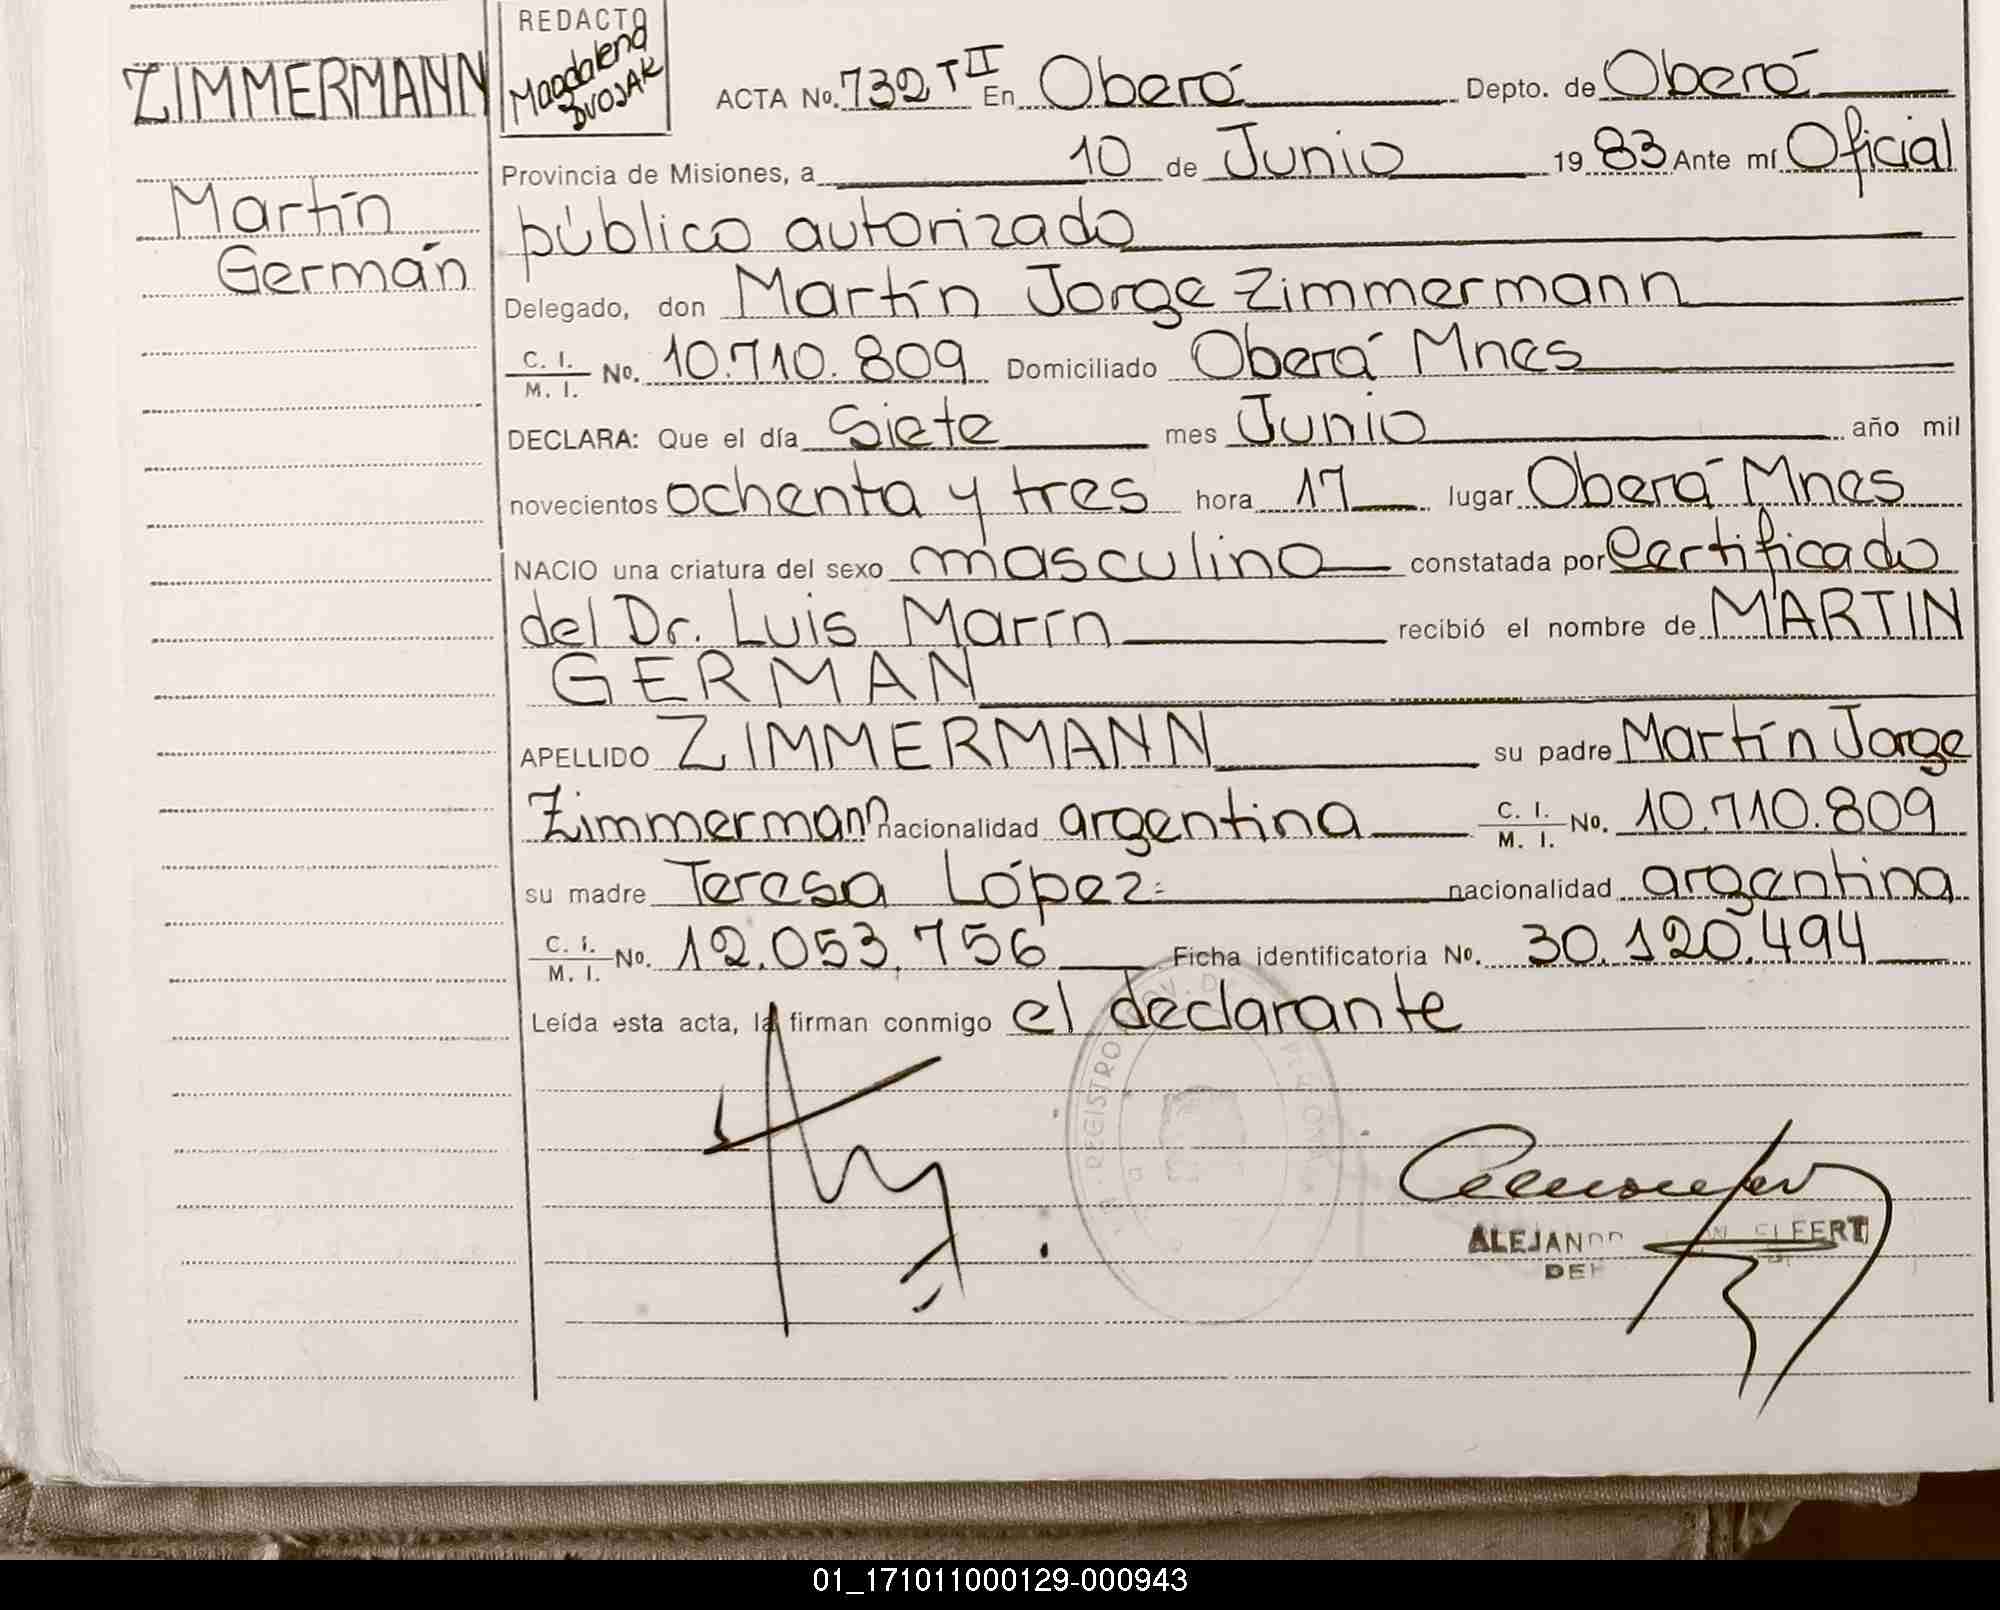 ZIMMERMANN
Martín
Germán
REDACTO
Magdalena
DVOJAK
ACTA No. 732 T II En Oberá Depto. de Oberá
Provincia de Misiones, a 10 de Junio 19 83 Ante mí Oficial
público autorizado
Delegado, don Martín Jorge Zimmermann
C. I. / M. I. No. 10.710.809 Domiciliado Oberá Mnes
DECLARA: Que el día Siete mes Junio año mil
novecientos ochenta y tres hora 17 lugar Oberá Mnes
NACIO una criatura del sexo masculino constatada por Certificado
del Dr. Luis Marín recibió el nombre de MARTIN
GERMAN
APELLIDO ZIMMERMANN su padre Martín Jorge
Zimmermann nacionalidad argentina C. I. / M. I. No. 10.710.809
su madre Teresa López = nacionalidad argentina
C. I. / M. I. No. 12.053.756 Ficha identificatoria No. 30.120.494
Leída esta acta, la firman conmigo el declarante
REGISTRO
ALEJAND
01_171011000129-000943